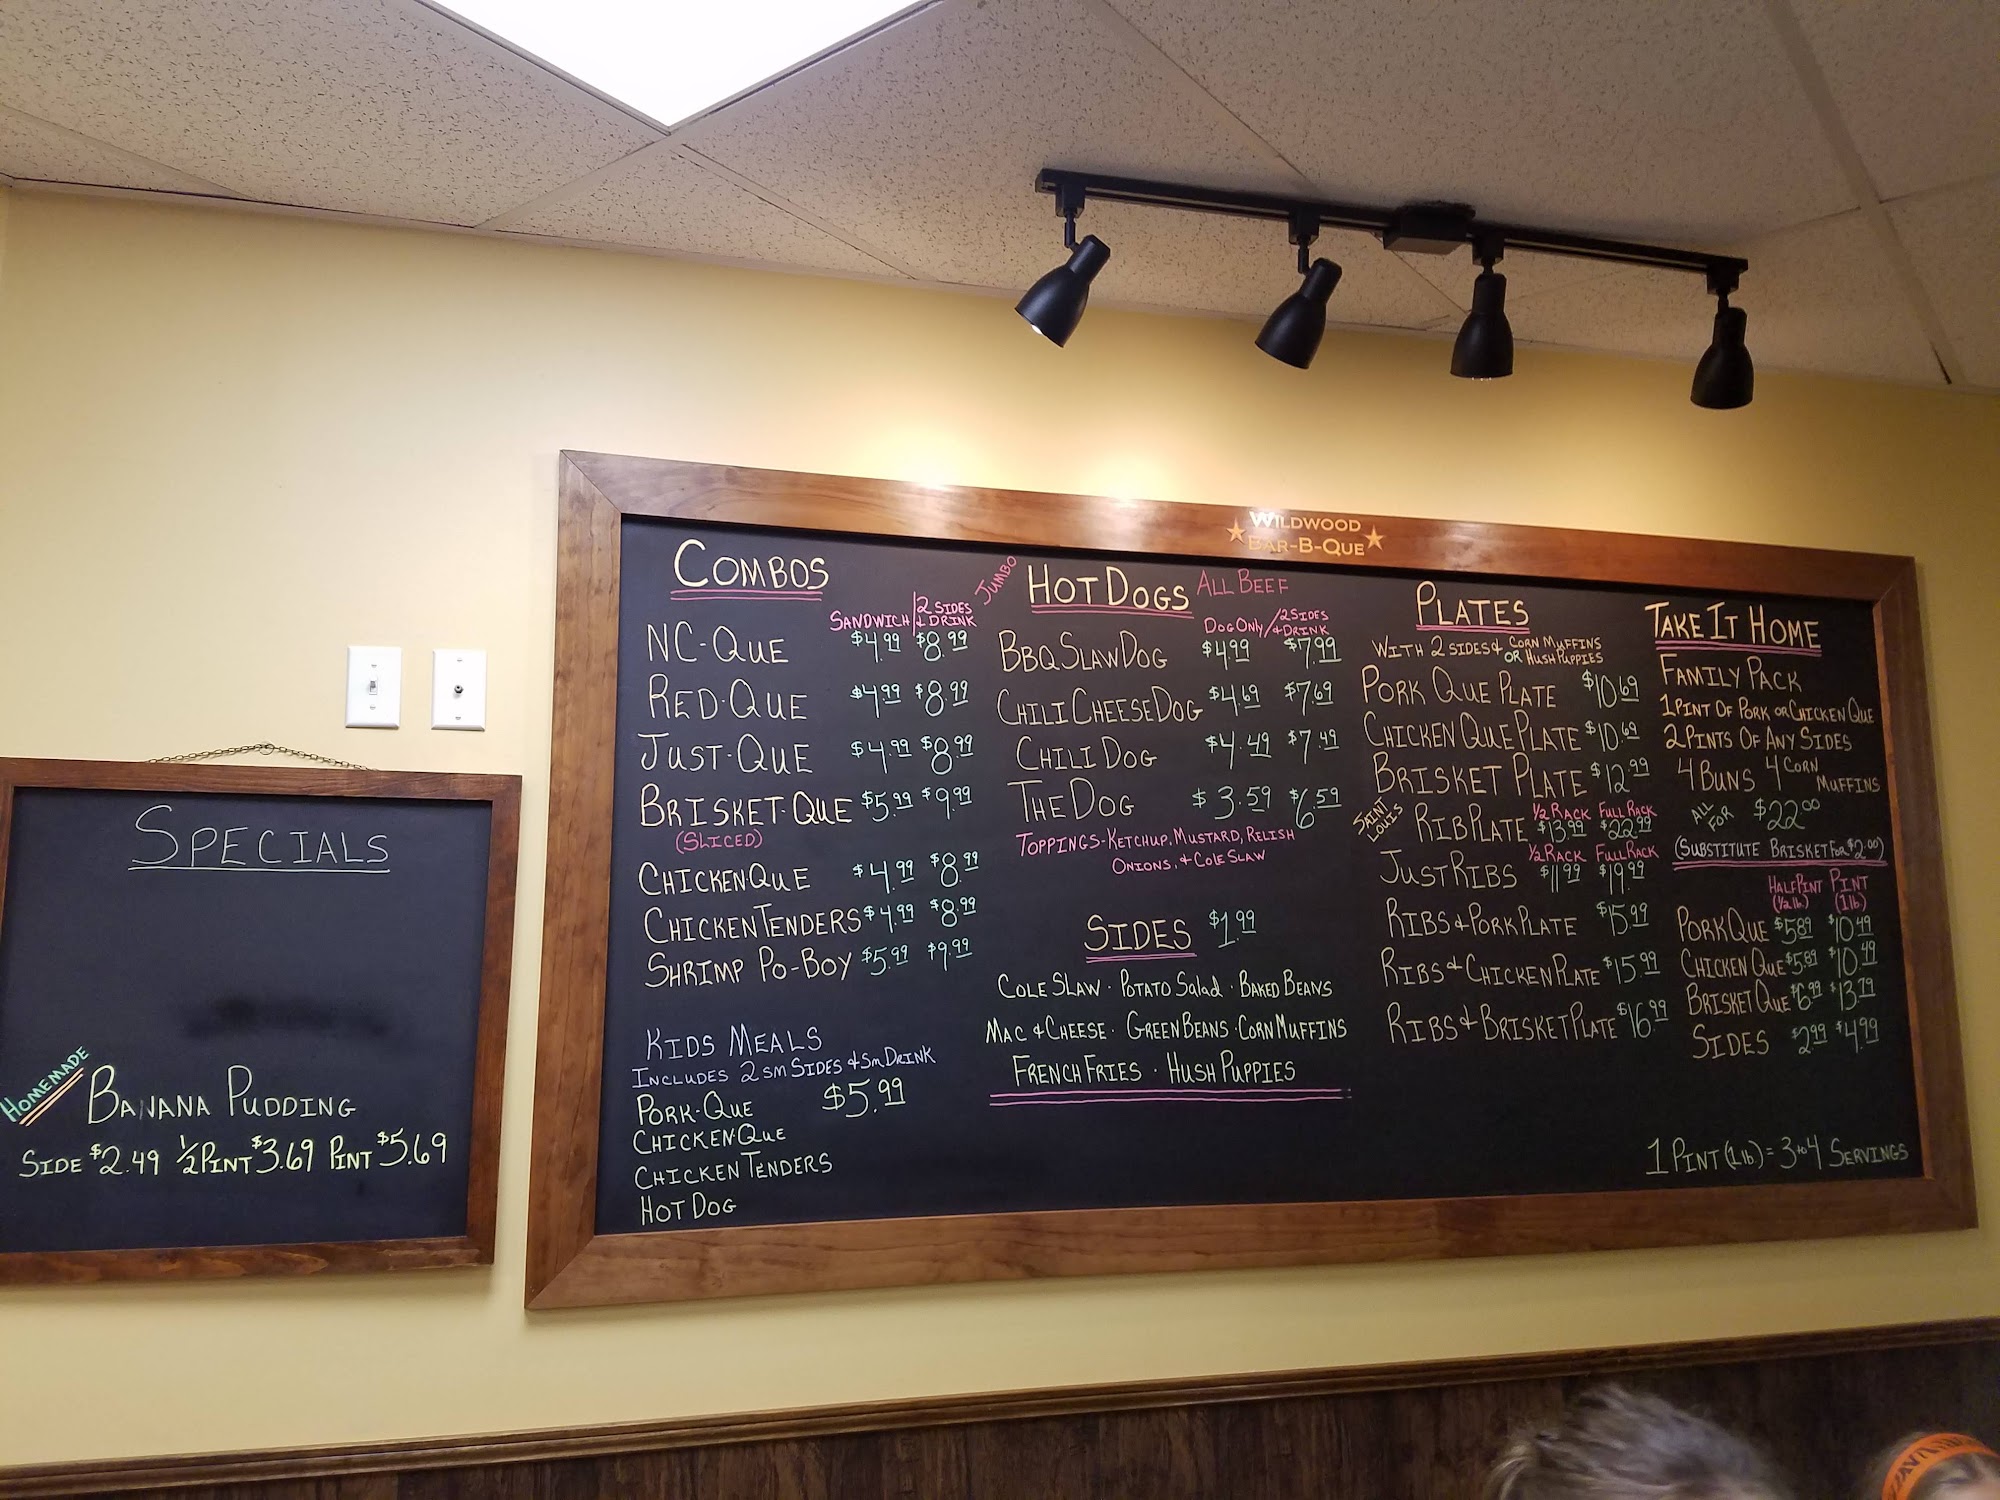 WILDWOOD
BAR-B-QUE
SPECIALS
HOMEMADE
BANANA PUDDING
SIDE $2.49 ½ PINT $3.69 PINT $5.69
COMBOS
SANDWICH | 2 SIDES & DRINK
NC-QUE $4.99 $8.99
RED-QUE $4.99 $8.99
JUST-QUE $4.99 $8.99
BRISKET-QUE $5.99 $9.99
(SLICED)
CHICKEN-QUE $4.99 $8.99
CHICKEN TENDERS $4.99 $8.99
SHRIMP PO-BOY $5.99 $9.99
KIDS MEALS
INCLUDES 2 SM SIDES & SM DRINK
PORK-QUE $5.99
CHICKEN-QUE
CHICKEN TENDERS
HOT DOG
JUMBO HOT DOGS ALL BEEF
DOG ONLY / 2 SIDES & DRINK
BBQ SLAW DOG $4.99 $7.99
CHILI CHEESE DOG $4.69 $7.69
CHILI DOG $4.49 $7.49
THE DOG $3.59 $6.59
TOPPINGS-KETCHUP, MUSTARD, RELISH
ONIONS, & COLE SLAW
SIDES $1.99
COLE SLAW · POTATO SALAD · BAKED BEANS
MAC & CHEESE · GREEN BEANS · CORN MUFFINS
FRENCH FRIES · HUSH PUPPIES
PLATES
WITH 2 SIDES & CORN MUFFINS
OR HUSH PUPPIES
PORK QUE PLATE $10.69
CHICKEN QUE PLATE $10.69
BRISKET PLATE $12.99
½ RACK FULL RACK
SAINT LOUIS RIB PLATE $13.99 $22.99
½ RACK FULL RACK
JUST RIBS $11.99 $19.99
RIBS & PORK PLATE $15.99
RIBS & CHICKEN PLATE $15.99
RIBS & BRISKET PLATE $16.99
TAKE IT HOME
FAMILY PACK
1 PINT OF PORK OR CHICKEN QUE
2 PINTS OF ANY SIDES
4 BUNS 4 CORN MUFFINS
ALL FOR $22.00
(SUBSTITUTE BRISKET FOR $2.00)
HALF PINT PINT
(½ lb.) (1 lb.)
PORK QUE $5.89 $10.49
CHICKEN QUE $5.89 $10.49
BRISKET QUE $6.99 $13.79
SIDES $2.99 $4.99
1 PINT (1 lb.) = 3 to 4 SERVINGS